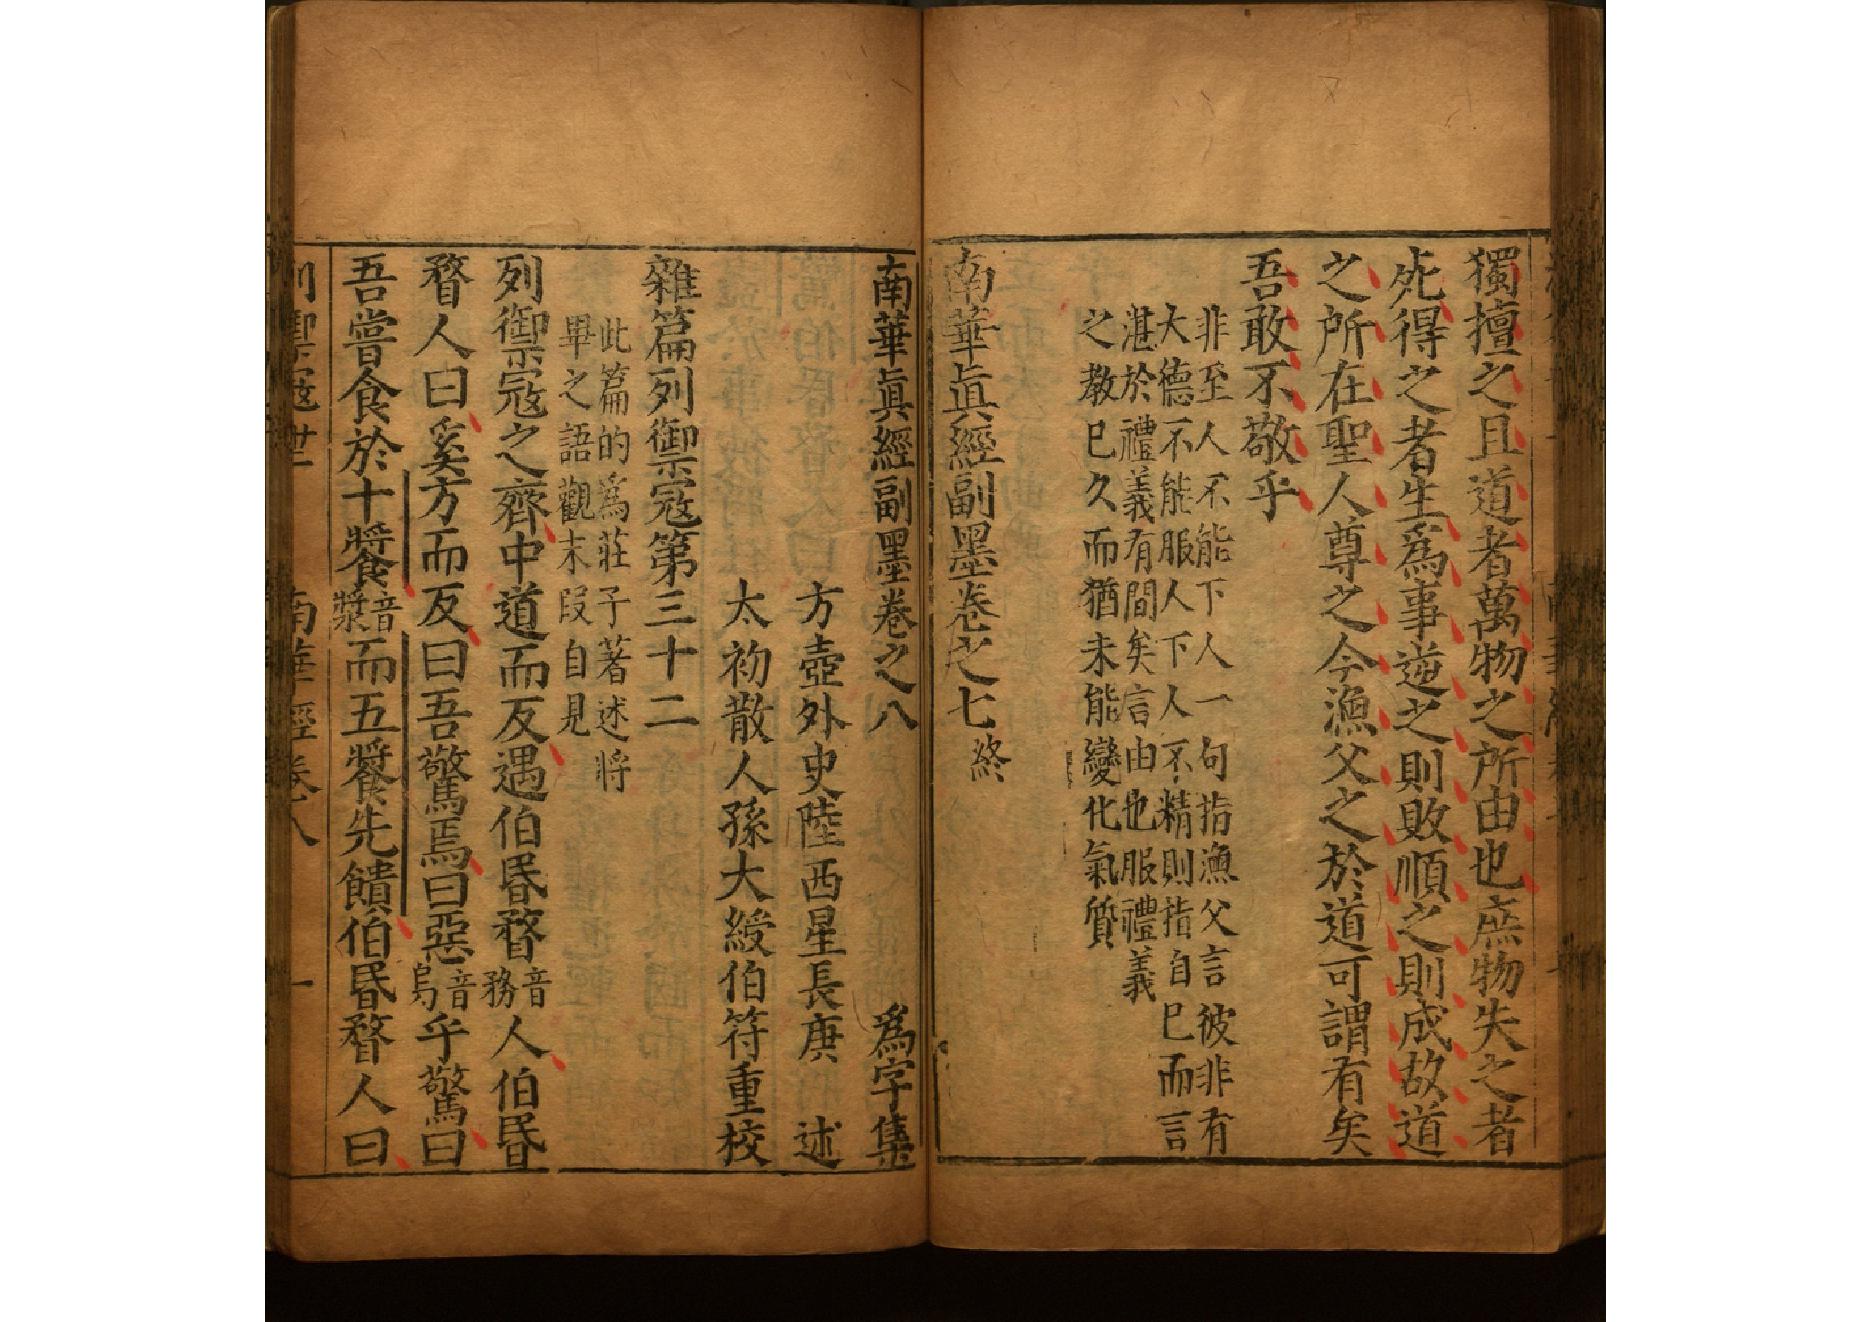 獨擅之且道者萬物之所由也庶物失之者
死得之者生爲事逆之則敗順之則成故道
之所在聖人尊之今漁父之於道可謂有矣
吾敢不敬乎
非至人不能下人一句指漁父言彼非有
大德不能服人下人不精則指自已而言
湛於禮義有間矣言由也服禮義
之教已久而猶未能變化氣質
南華眞經副墨卷之七終
南華眞經副墨卷之八 爲字集
方壺外史陸西星長庚 述
太初散人孫大綬伯符重校
雜篇列禦寇第三十二
此篇的爲莊子著述將
畢之語觀末叚自見
列禦寇之齊中道而反遇伯昏瞀音務人伯昏
瞀人曰奚方而反曰吾驚焉曰惡音烏乎驚曰
吾嘗食於十饗音漿而五饗先饋伯昏瞀人曰
列禦寇卅二 南華經卷八 一